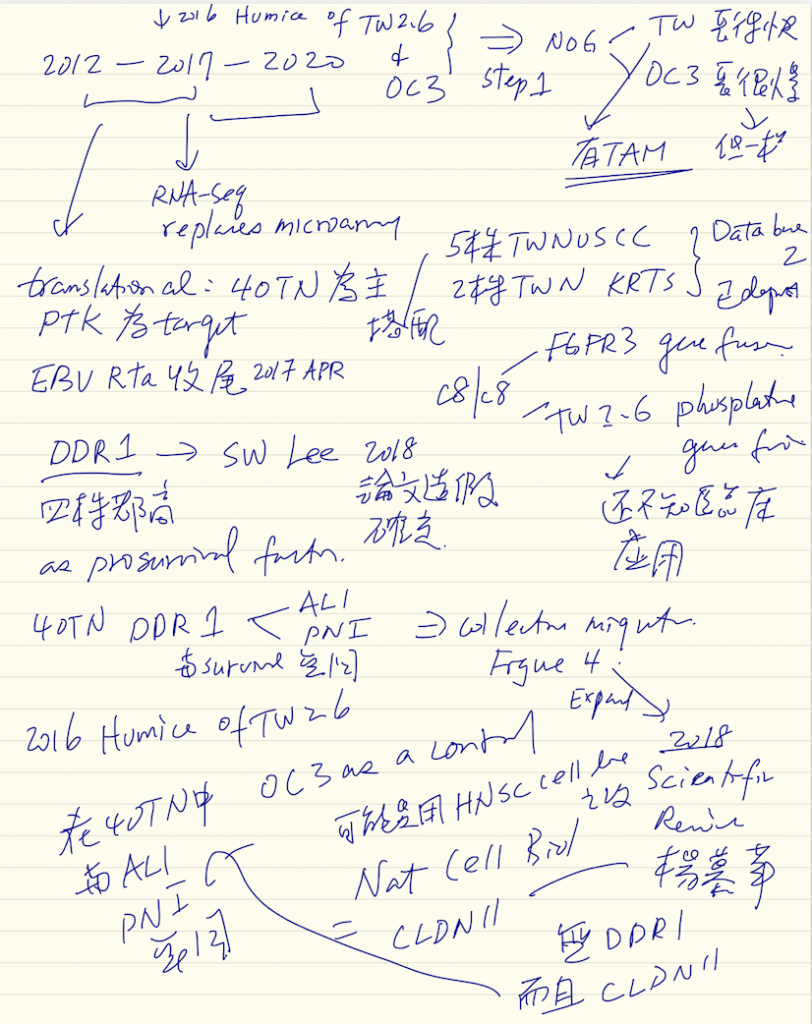 ↓ 2016 Humice of TW2.6
2012 — 2017 — 2020 & OC3 } ⇒ step 1 NOG
TW 長得快
OC3 長很慢
有TAM 但一樣
RNA-seq
replaces microarray
5株 TWNOSCC } Database
2株 TWN KRTS 2 已deposit
translational: 40TN 為主
PTK 為 target 搭配
EBV Rta 收尾 2017 APR
c8/c8 FGFR3 gene fusion
TW2.6 phosphatase
gene fusion
DDR1 → SW Lee 2018
四株都高 論文造假
不確定
还不知臨床
應用
as prosurvival factor.
40TN DDR1 < ALI
PNI ⇒ collective migration.
與survival 無關 Figure 4.
Expand
2016 Humice of TW2.6
OC3 as a control
2018
Scientific
Review
楊慕華
可能是用 HNSC cell line
之故
在40TN中
與ALI
PNI
無關
Nat Cell Biol
= CLDN11
DDR1
而且 CLDN11